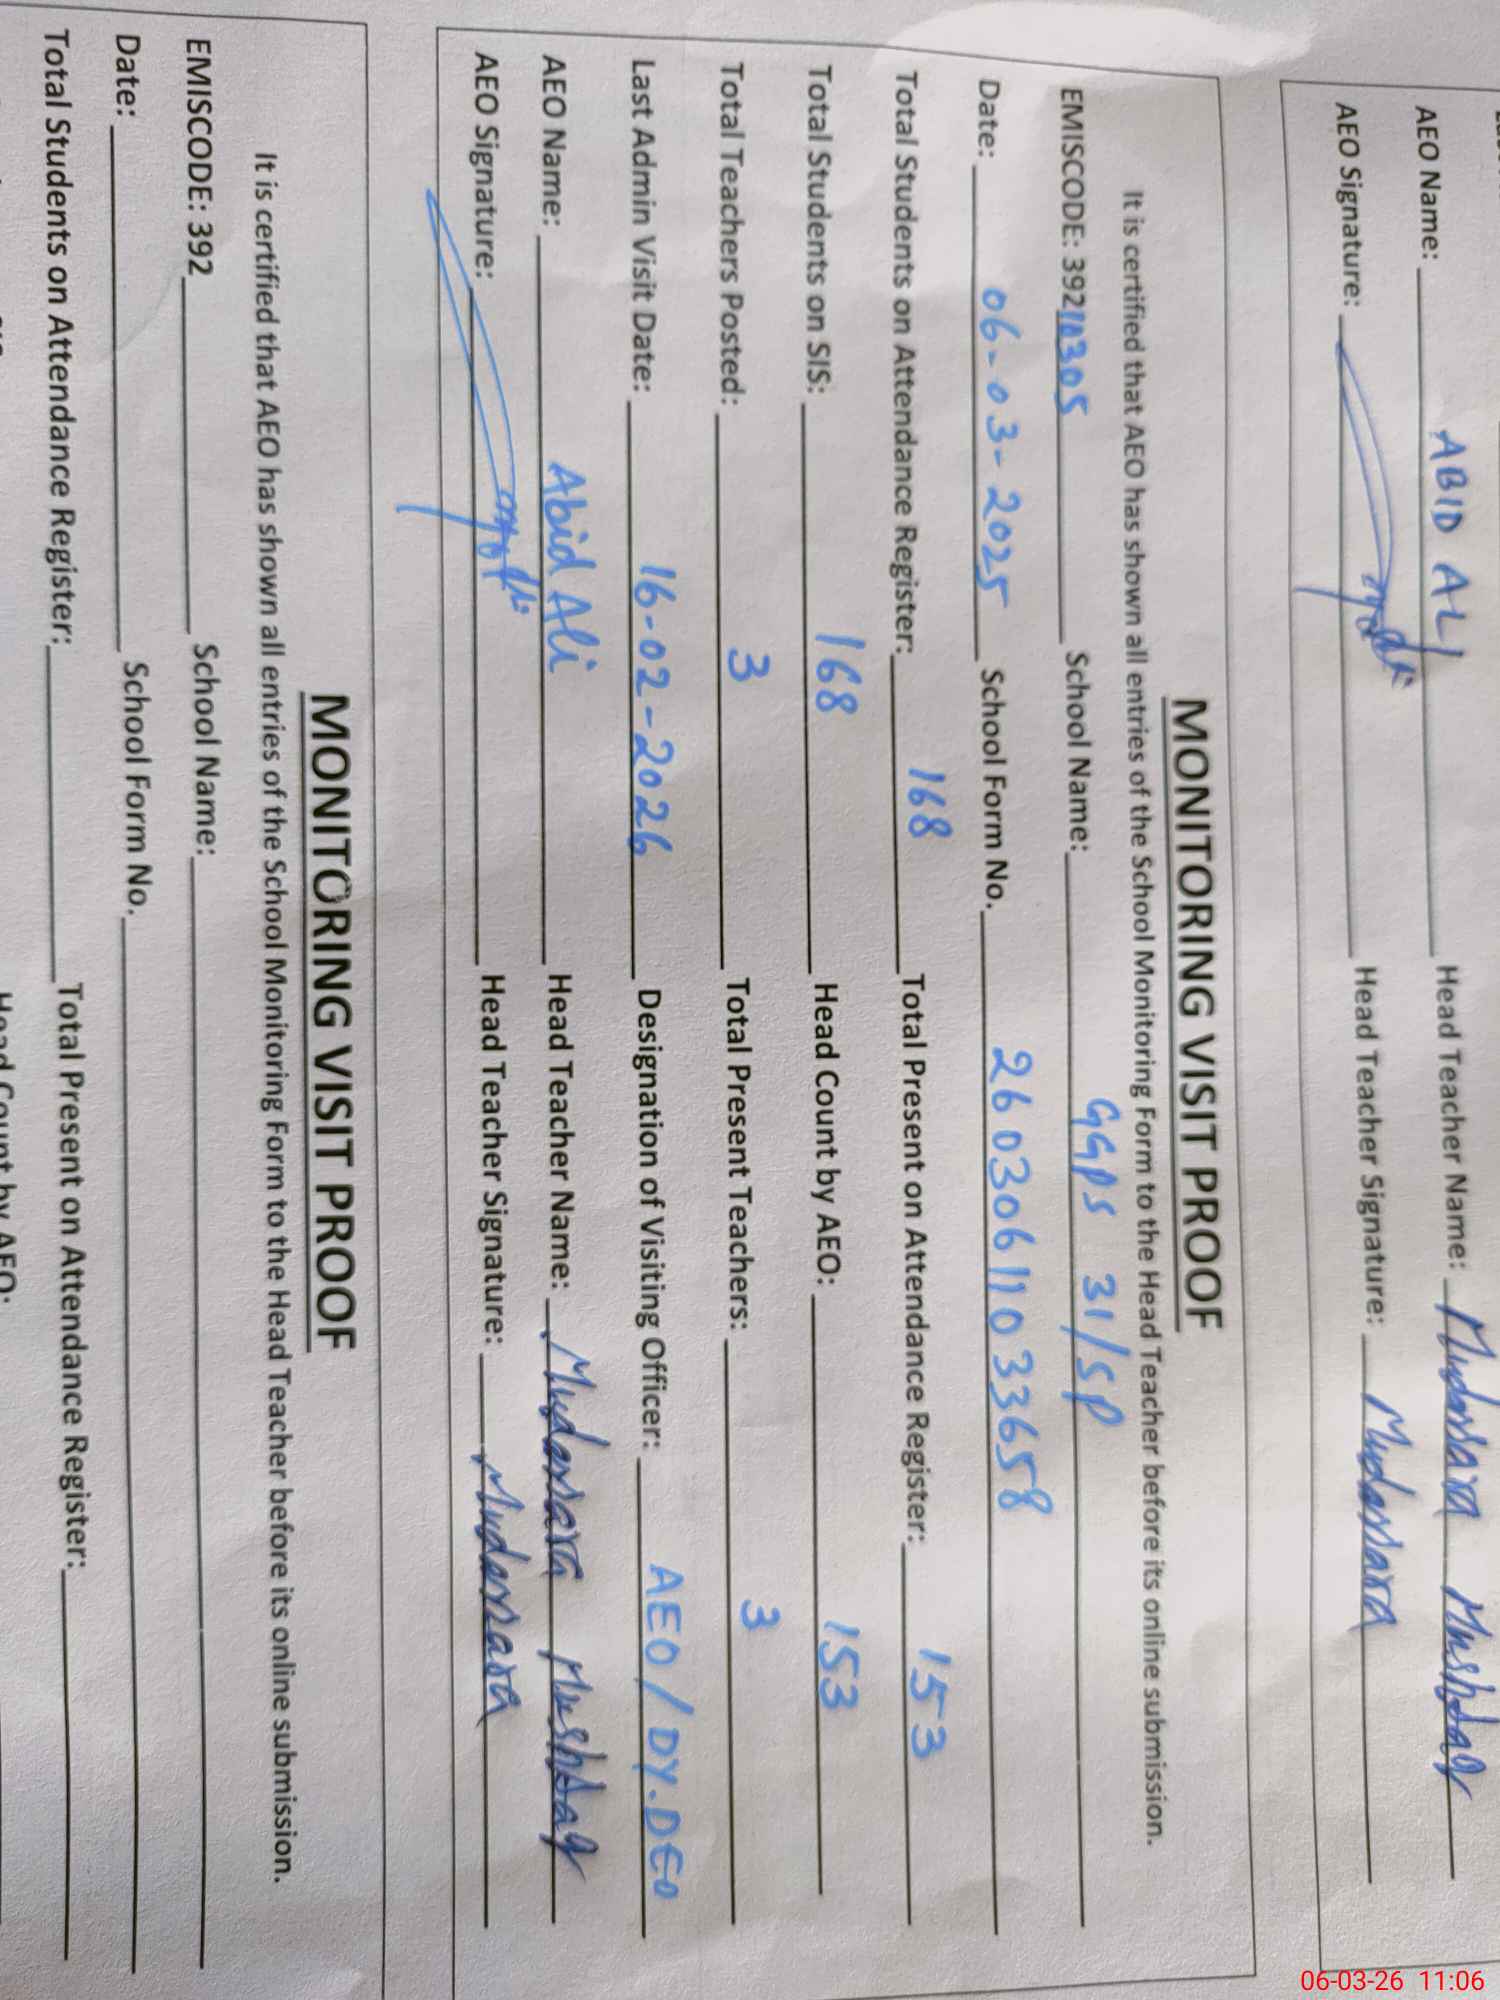 AEO Name: ABID ALI Head Teacher Name: Mudassara Mushtaq
AEO Signature: Head Teacher Signature: Mudassara
MONITORING VISIT PROOF
It is certified that AEO has shown all entries of the School Monitoring Form to the Head Teacher before its online submission.
EMISCODE: 39210305 School Name: GGPS 31/SP
Date: 06-03-2025 School Form No. 26030611033658
Total Students on Attendance Register: 168 Total Present on Attendance Register: 153
Total Students on SIS: 168 Head Count by AEO: 153
Total Teachers Posted: 3 Total Present Teachers: 3
Last Admin Visit Date: 16-02-2026 Designation of Visiting Officer: AEO/DY.DEO
AEO Name: Abid Ali Head Teacher Name: Mudassara Mushtaq
AEO Signature: Head Teacher Signature: Mudassara
MONITORING VISIT PROOF
It is certified that AEO has shown all entries of the School Monitoring Form to the Head Teacher before its online submission.
EMISCODE: 392 School Name:
Date: School Form No.
Total Students on Attendance Register: Total Present on Attendance Register:
Head Count by AEO:
06-03-26 11:06